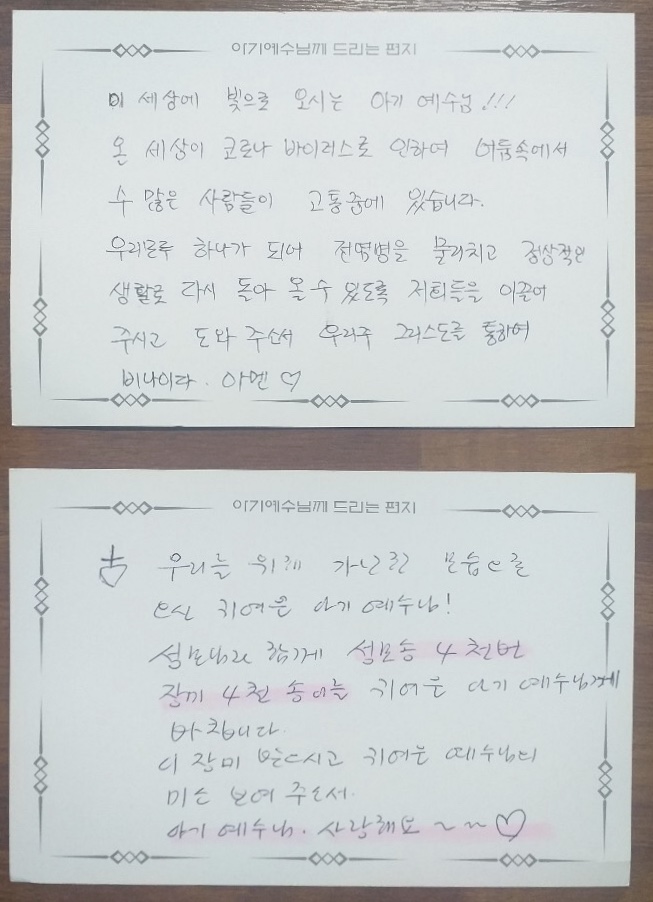 아기예수님께 드리는 편지
이 세상에 빛으로 오시는 아기 예수님!!!
온 세상이 코로나 바이러스로 인하여 어둠속에서
수 많은 사람들이 고통중에 있습니다.
우리모두 하나가 되어 전염병을 물리치고 정상적인
생활로 다시 돌아 올 수 있도록 저희들을 이끌어
주시고 도와 주소서 우리주 그리스도를 통하여
비나이다. 아멘 ♡
아기예수님께 드리는 편지
우리를 위해 가난한 모습으로
오신 귀여운 아기 예수님!
성모님과 함께 성모송 4천번
장미 4천 송이를 귀여운 아기 예수님께
바칩니다.
이 장미 받으시고 귀여운 예수님의
미소 보여 주소서.
아기 예수님. 사랑해요 ~~♡